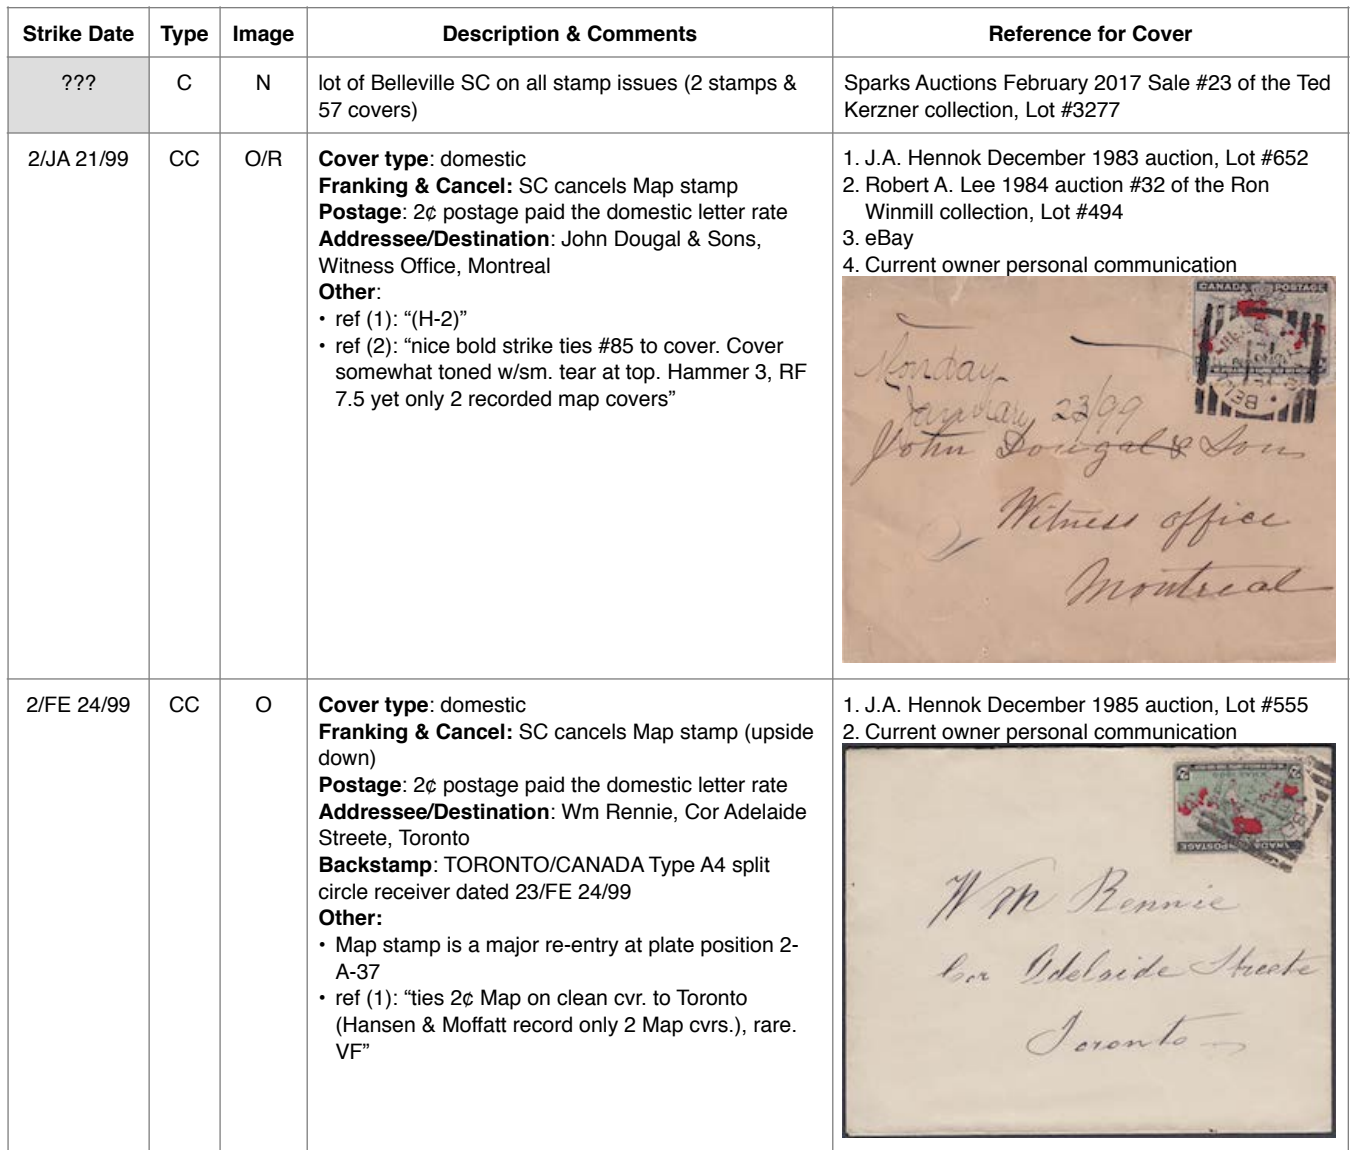 Strike Date Type Image Description & Comments Reference for Cover
??? C N lot of Belleville SC on all stamp issues (2 stamps &
57 covers)
Sparks Auctions February 2017 Sale #23 of the Ted
Kerzner collection, Lot #3277
2/JA 21/99 CC O/R
Cover type: domestic
Franking & Cancel: SC cancels Map stamp
Postage: 2¢ postage paid the domestic letter rate
Addressee/Destination: John Dougal & Sons,
Witness Office, Montreal
Other:
• ref (1): “(H-2)”
• ref (2): “nice bold strike ties #85 to cover. Cover
somewhat toned w/sm. tear at top. Hammer 3, RF
7.5 yet only 2 recorded map covers”
1. J.A. Hennok December 1983 auction, Lot #652
2. Robert A. Lee 1984 auction #32 of the Ron
Winmill collection, Lot #494
3. eBay
4. Current owner personal communication
CANADA POSTAGE
Monday
January 23/99
John Dougal & Sons
Witness office
Montreal
2/FE 24/99 CC O
Cover type: domestic
Franking & Cancel: SC cancels Map stamp (upside
down)
Postage: 2¢ postage paid the domestic letter rate
Addressee/Destination: Wm Rennie, Cor Adelaide
Streete, Toronto
Backstamp: TORONTO/CANADA Type A4 split
circle receiver dated 23/FE 24/99
Other:
• Map stamp is a major re-entry at plate position 2-
A-37
• ref (1): “ties 2¢ Map on clean cvr. to Toronto
(Hansen & Moffatt record only 2 Map cvrs.), rare.
VF”
1. J.A. Hennok December 1985 auction, Lot #555
2. Current owner personal communication
Wm Rennie
Cor Adelaide Streete
Toronto